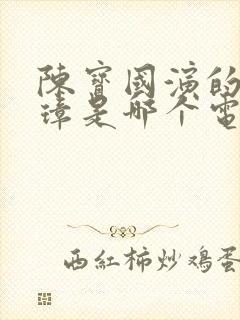 陳寶國演的
璋是哪个電
西紅柿炒鸡蛋